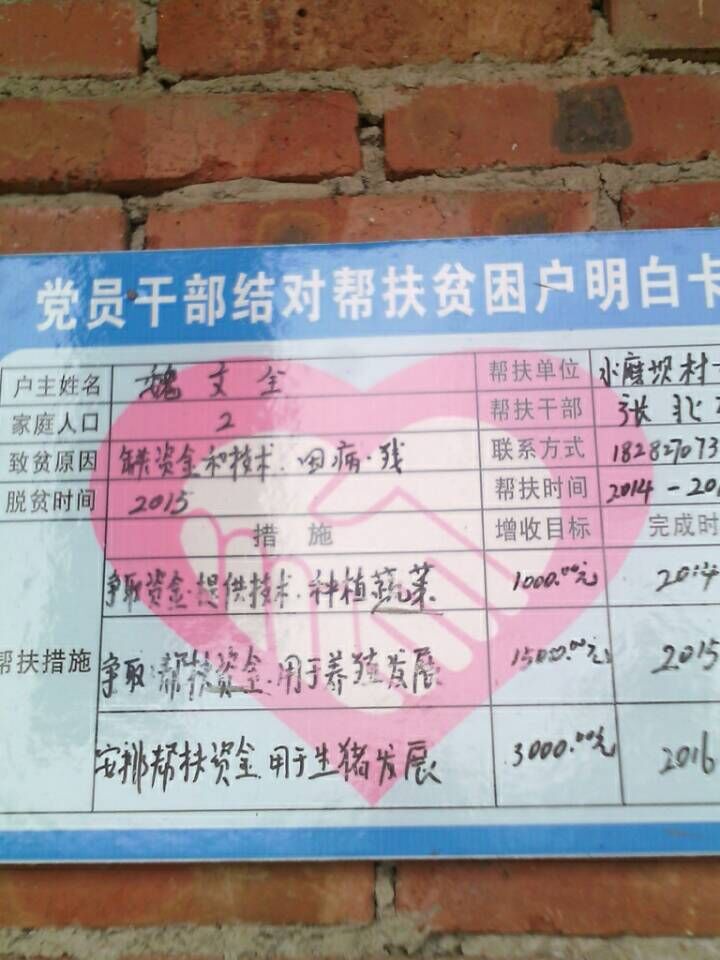 党员干部结对帮扶贫困户明白卡
户主姓名 魏文全 帮扶单位 水磨坝村
家庭人口 2 帮扶干部 张
致贫原因 缺资金和技术.因病.残 联系方式 18282073
脱贫时间 2015 帮扶时间 2014-201
措施 增收目标 完成时
争取资金.提供技术.种植蔬菜 1000.00元 2014
帮扶措施 争取帮扶资金.用于养殖发展 1500.00元 2015
安排帮扶资金.用于生猪发展 3000.00元 2016